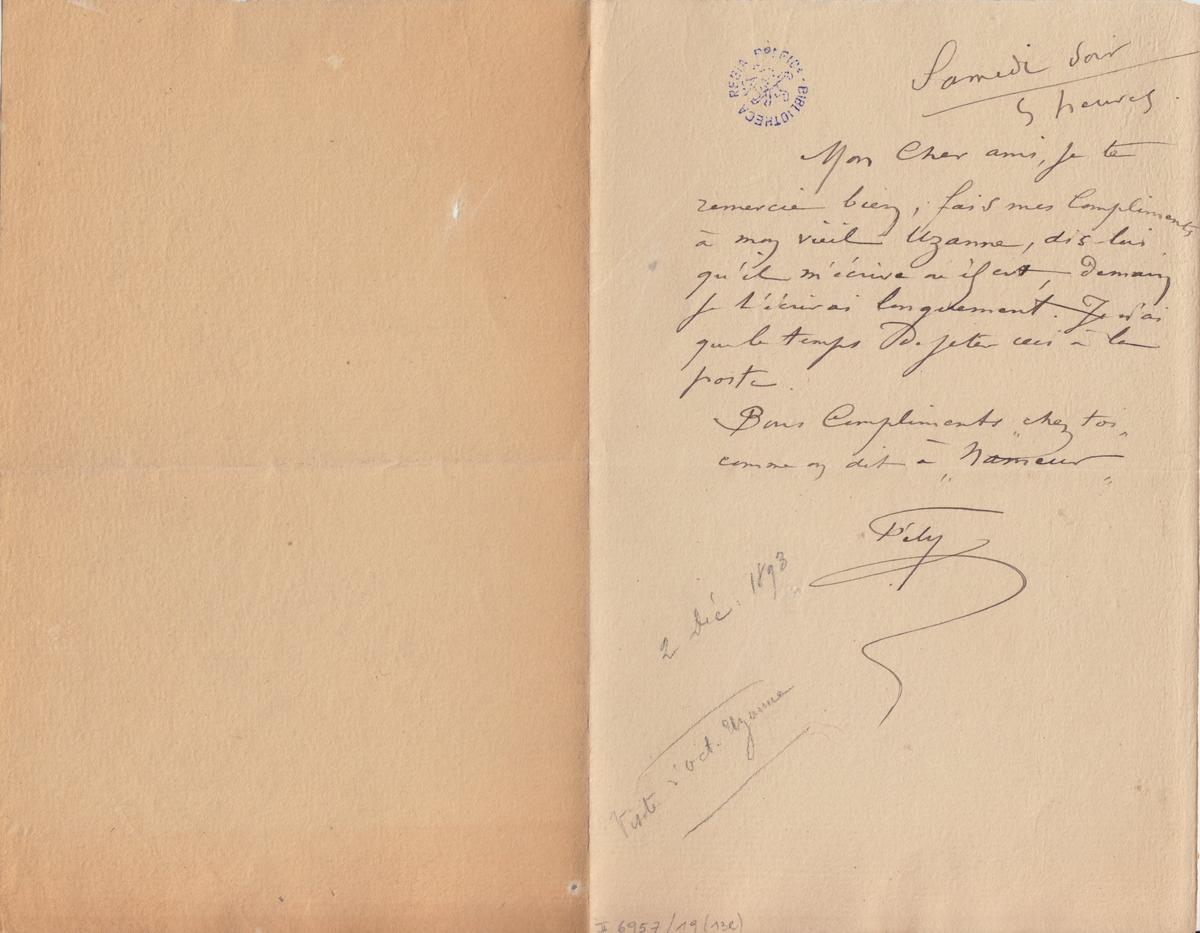 Samedi Soir
5 heures.
REGIA BELGICA BIBLIOTHECA
Mon Cher ami, Je te
remercie bien, fais mes Compliments
à mon vieil Uzanne, dis-lui
qu'il m'écrive où il est, Demain
Je t'écrirai longuement. Je n'ai
que le temps De jeter ceci à la
poste.
Bons Compliments „chez toi„
comme on dit à „Nameur"
Fély
2 Déc. 1893
Visite d'Oct. Uzanne
II 6957/19(132)